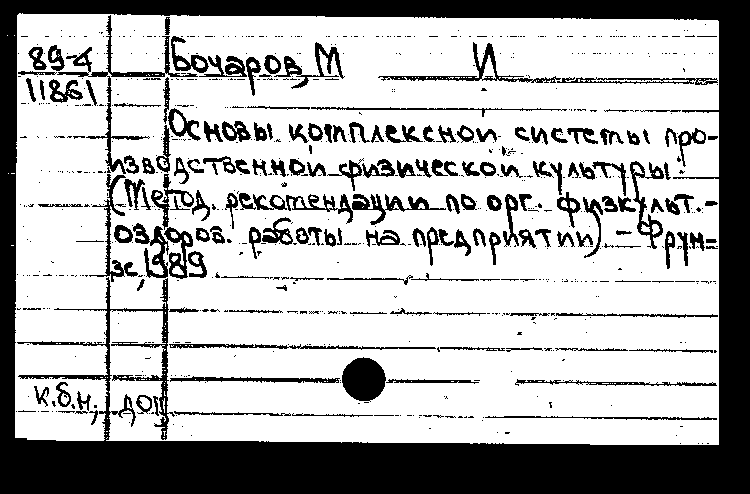 89-4 Бочаров, М И
11861
Основы комплексной системы про-
изводственной физической культуры:
(Метод. рекомендации по орг. физкульт.-
оздоров. работы на предприятии) - Фрун=
зе, 1989.
к.б.н., доц